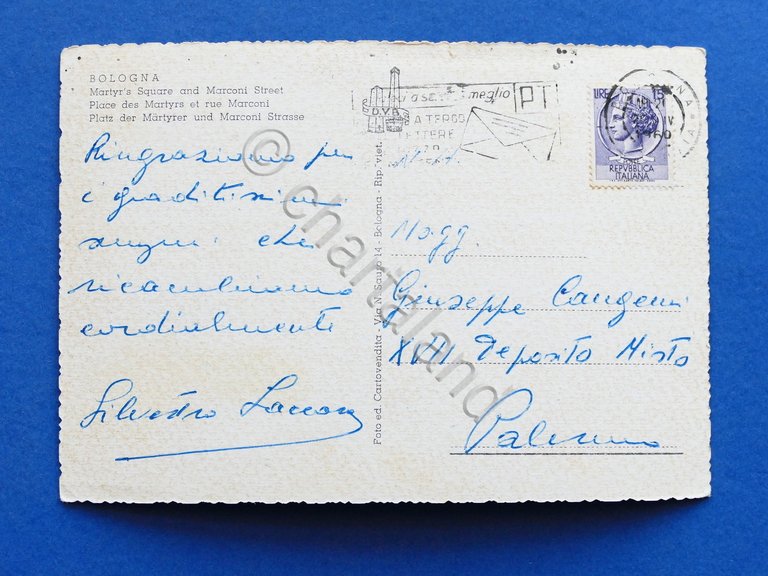 BOLOGNA
Martyr's Square and Marconi Street
Place des Martyrs et rue Marconi
Platz der Märtyrer und Marconi Strasse
Ringraziamo per
i graditissimi
auguri che
ricambiamo
cordialmente
Silvestro
Foto ed. Cartovendita - Via N. Sauro 14 - Bologna - Rip. Viet.
meglio
PT
A TERGO
LETTERE
LIRE 15
REPVBBLICA
ITALIANA
Magg.
Giuseppe Cangemi
XVII Deposito Misto
Palermo
© chartaland